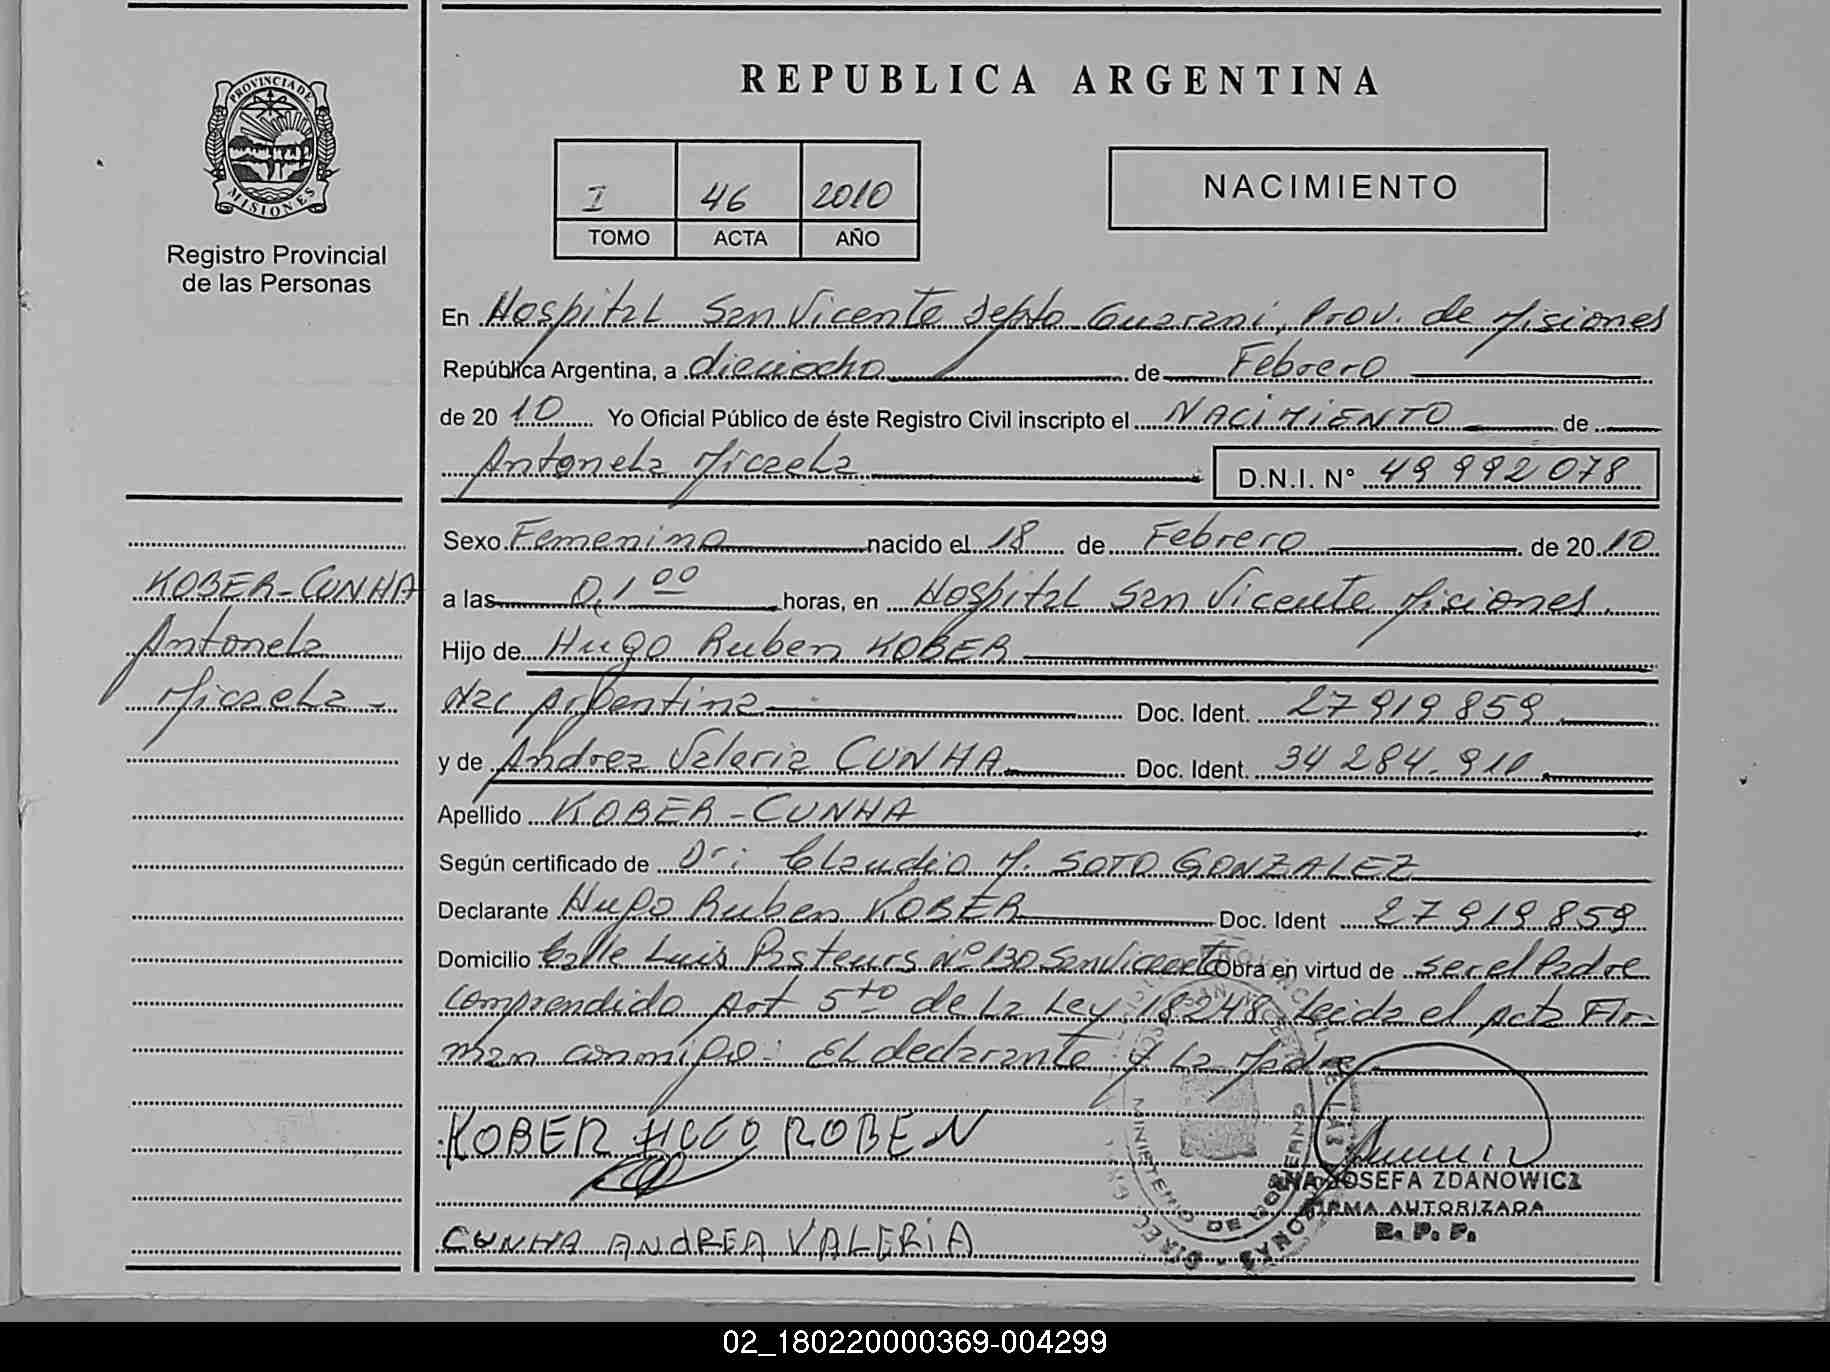 PROVINCIA DE
MISIONES
Registro Provincial
de las Personas
KOBER-CUNHA
Antonela
Micaela -
REPUBLICA ARGENTINA
I 46 2010
TOMO ACTA AÑO
NACIMIENTO
En Hospital San Vicente Depto Guarani, Prov. de Misiones
República Argentina, a dieciocho de Febrero
de 20 10 Yo Oficial Público de éste Registro Civil inscripto el NACIMIENTO de
Antonela Micaela D.N.I. N° 49 992 078
Sexo Femenino nacido el 18 de Febrero de 20 10
a las 0,1 00 horas, en Hospital San Vicente Misiones
Hijo de Hugo Ruben KOBER
Nac Argentina Doc. Ident. 27 919 859
y de Andrea Valeria CUNHA Doc. Ident. 34 284. 910
Apellido KOBER - CUNHA
Según certificado de Dr: Claudio M. SOTO GONZALEZ
Declarante Hugo Ruben KOBER Doc. Ident 27 919 859
Domicilio Calle Luis Pasteurs N° 130 San Vicente Obra en virtud de ser el Padre
Comprendido Art 5to de La Ley 18248 Leida el Acta Fir-
man conmigo: El declarante y La Madre
KOBER HUGO RUBEN
ANA JOSEFA ZDANOWICZ
FIRMA AUTORIZADA
R. P. P.
CUNHA ANDREA VALERIA
MINISTERIO DE GOBIERNO
02_180220000369-004299